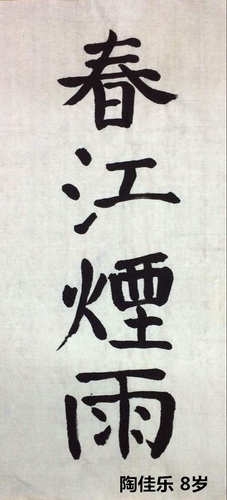 春江煙雨
陶佳乐 8岁